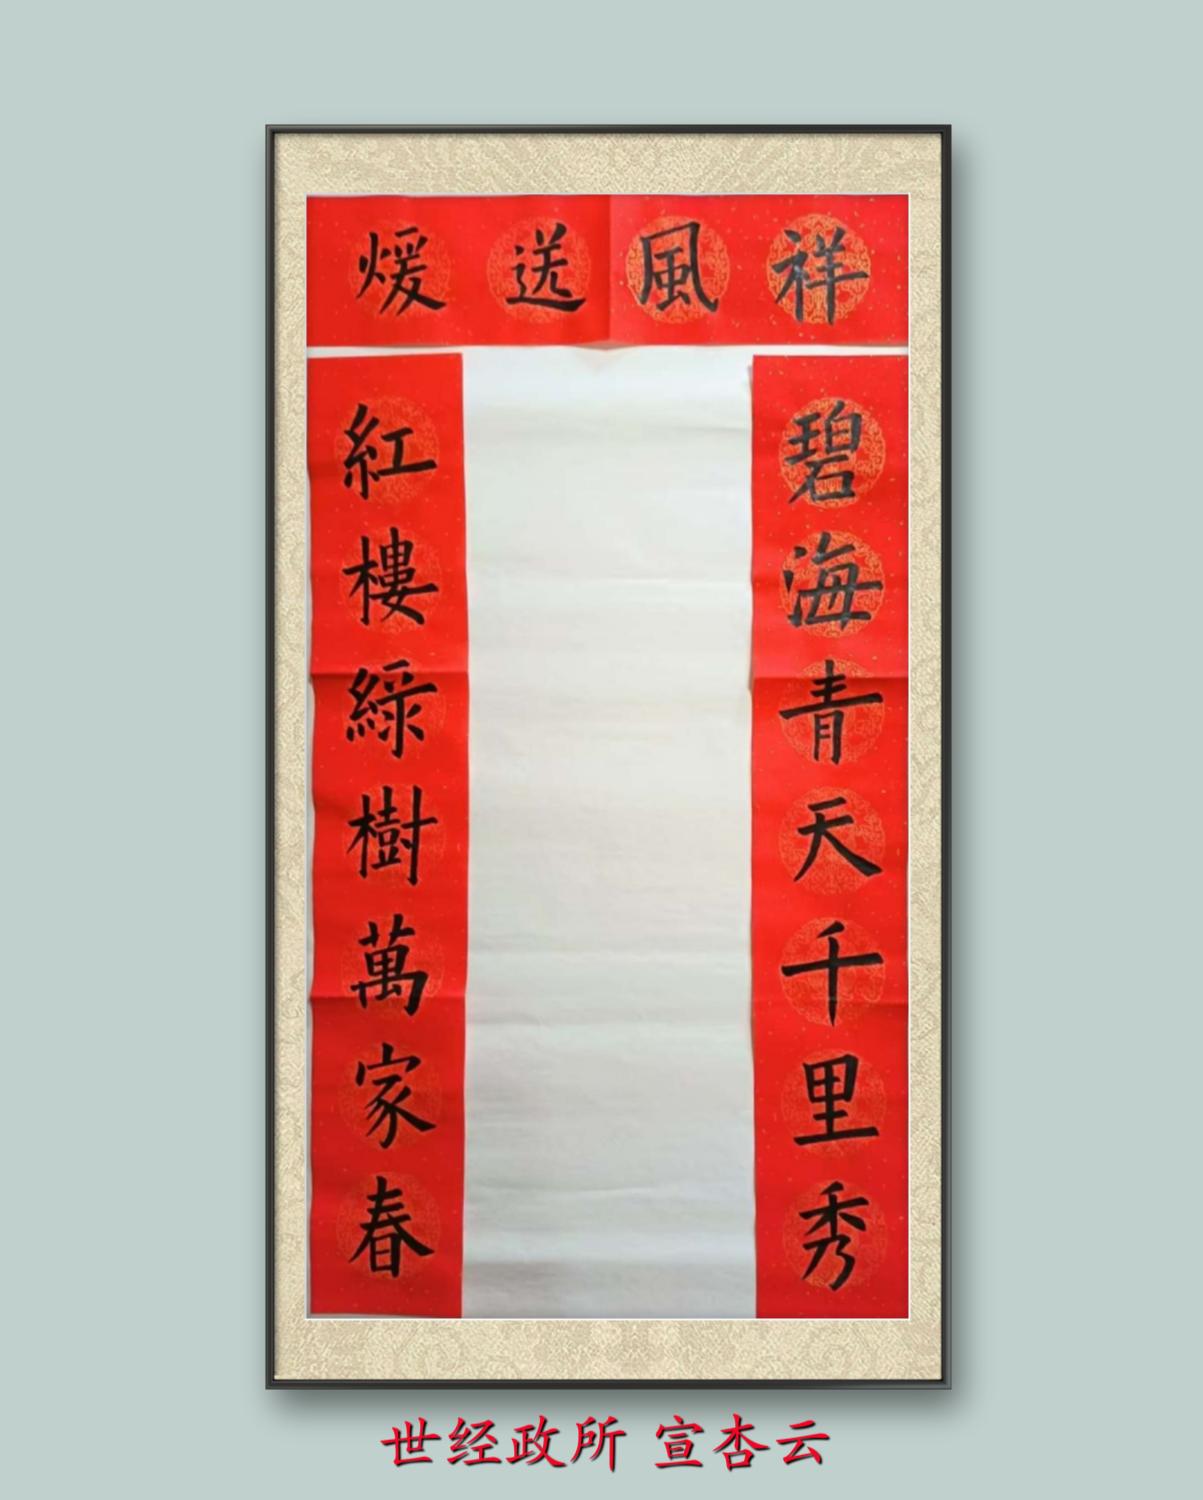 祥風送煖
碧海青天千里秀
紅樓綠樹萬家春
世经政所 宣杏云